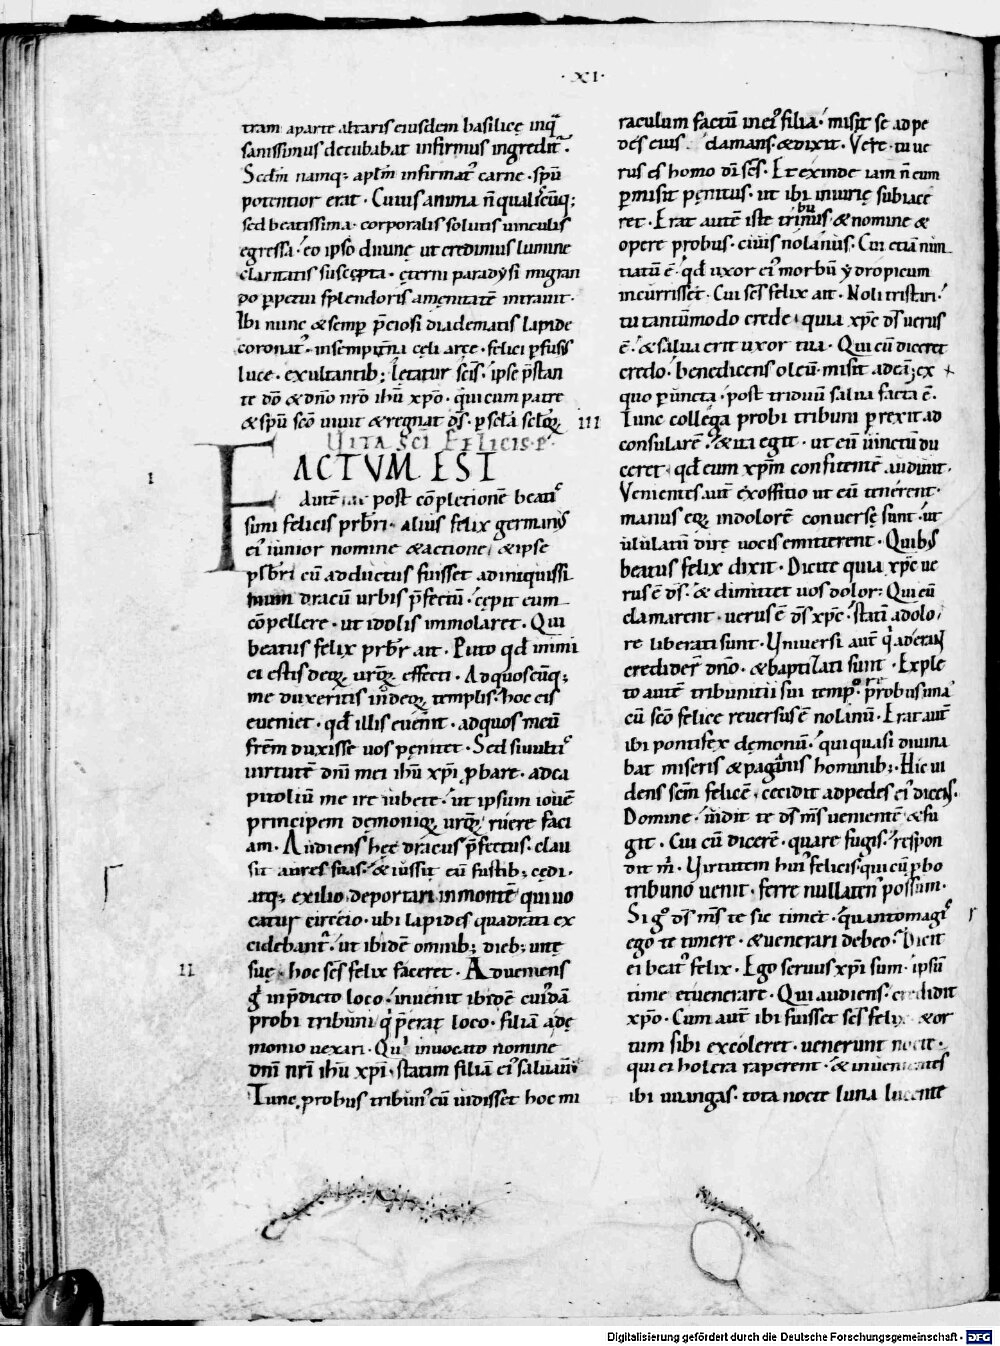 · XI ·
tram aparte altaris eiusdem basilicę inq̄
sanissimus decubabat infirmus ingredit᷑.
Sedm̄ namq; aplm̄ infirmat᷑ carne · spū
potentior erat · Cuius anima n̄ qualiscūq;
sed beatissima · corporalis soluus uinculis
egressa · eo ipso diuinę ut credimus lumine
claritatis suscępta · ęterni paradysi migran
do ꝑpetui splendoris amęnitatē intrauit ·
Ibi nunc & semꝑ p̄ciosi diadematis lapide
coronat᷑ · insempit̄na cęli arce · felici ꝑfusis
luce · exultantib; lętatur scīs · ipse p̄stan
te dō & dn̄o nr̄o ihū xp̄o · qui cum patre
& spū scō uiuit & regnat dς̄ · ꝑ sc̄la sc̄loꝝ
VITA SCĪ FELICIS P̄
I
FACTVM EST
autē post cōpletionē beatis
simi felicis prb̄ri · alius felix germanus
ei᷒ iunior nomine & actione · & ipse
psb̄ri cū adductus fuisset adiniquissi
mum dracū urbis p̄fectū · cępit eum
cōpellere · ut idolis immolaret · Qui
beatus felix prb̄r ait · Puto qd̄ inimi
ci estis deoꝝ urōꝝ effecti · Ad quoscūq;
me duxeritis in deoꝝ templis · hoc eis
eueniet · qd̄ illis euenit · ad quos meū
fr̄em duxisse uos pęnitet · Sed siuultis
uirtutē dn̄i mei ihū xp̄i ꝓbare · adca
pitoliū me ire iubete · ut ipsum iouē
principem dęmonioꝝ urōꝝ ruere faci
am · Audiens hęc dracus p̄fectus · clau
sit aures suas · & iussit eū fustib; cędi ·
atq; exilio deportari inmontē qui uo
catur circeio · ubi lapides quadrati ex
cidebant᷑ · ut ibidē omnib; dieb; uitę
II
suę · hoc scs̄ felix faceret · Adueniens
g̊ inp̄dicto loco · inuenit ibidē cuiusdā
probi tribuni qi p̄erat loco · filiam a dę
monio uexari · Qui inuocato nomine
dn̄i nr̄i ihū xp̄i · statim filiā ei᷒ saluauit
Tunc probus tribun᷒ cū uidisset hoc mi
raculum factū inei᷒ filia · misit se ad pe
des eius · clamans · & dixit · Vere tu ue
rus es homo dī scs̄ · Et exinde iam n̄ eum
ꝑmisit pęnitus · ut ibi iniurię subiace
ret · Erat autē iste tribunus · & nomine &
opere probus · ciuis nolanus · Cui etiā nun
tiatū ē · qd̄ uxor ei᷒ morbū ydropicum
incurrisset · Cui scs̄ felix ait · Noli tristari ·
tu tantūmodo crede · quia xp̄c dς̄ uerus
ē · & salua erit uxor tua · Qui cū diceret
credo · benedicens oleū · misit ad eā; ex
quo ꝑuncta · post triduū salua facta ē ·
III
Tunc collega probi tribuni ꝑrexit ad
consularē · & ita egit · ut eū uinctū du
ceret · qd̄ eum xp̄m confitentē audiuit ·
Venientes aut̄ exoffitio ut eū tenerent ·
manus eoꝝ indolorē conuersę sunt · ut
ululatū dirę uocis emitterent · Quibus
beatus felix dixit · Dicite quia xp̄c ue
rus ē dς̄ · & dimittet uos dolor · Qui cū
clamarent · uerus ē dς̄ xp̄c · statī a dolo
re liberati sunt · Vniuersi aut̄ qi aderant
credider̄ dn̄o · & baptizati sunt · Exple
to autē tribunitii sui tempore · probus una
cū scō felice reuersus ē nolanū · Erat aut̄
ibi pontifex dęmonū · qui quasi diuina
bat miseris & paganis hominib; · Hic ui
dens scm̄ felicē · cecidit ad pedes ei᷒ dicens ·
Domine · uidit te dς̄ ms̄ uenientē & fu
git · Cui cū dicerē · quare fugis · respon
dit m̄ · Virtutem hui᷒ felicis qui cū ꝓbo
tribuno uenit · ferre nullaten᷒ possum ·
Si g̊ dς̄ ms̄ te sic timet · quanto magis
ego te timere · & uenerari debeo · Dicit
ei beat᷒ felix · Ego seruus xp̄i sum · ipsū
time et uenerare · Qui audiens · credidit
xp̄o · Cum aut̄ ibi fuisset scs̄ felix & or
tum sibi excoleret · uenerunt nocte ·
qui ei holera raperent · & inuenientes
ibi uuangas · tota nocte luna lucente
Digitalisierung gefördert durch die Deutsche Forschungsgemeinschaft - DFG